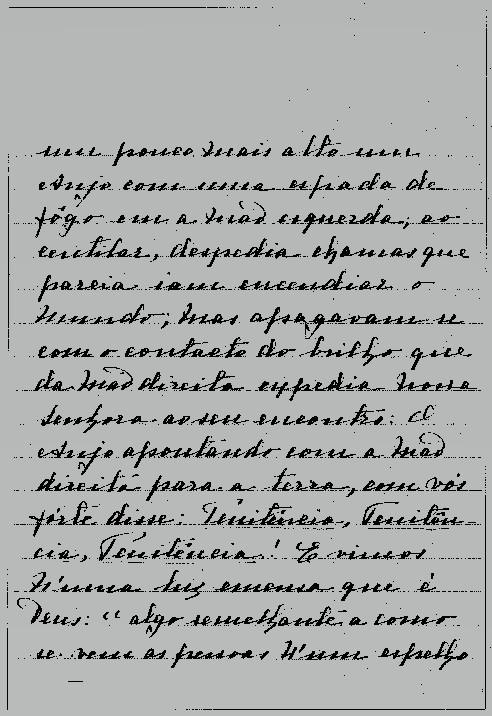 um pouco mais alto um
Anjo com uma espada de
fôgo em a mão esquerda; ao
centilar, despedia chamas que
parcia iam encendiar o
mundo; mas apagavam-se
com o contacto do brilho que
da mão direita expedia Nossa
Senhora ao seu encontro: O
Anjo apontando com a mão
direita para a terra, com vós
forte disse: Penitência, Peniten-
cia, Penitência! E vimos
n'uma luz emensa que é
Deus: "algo semelhante a como
se vem as pessoas n'um espelho